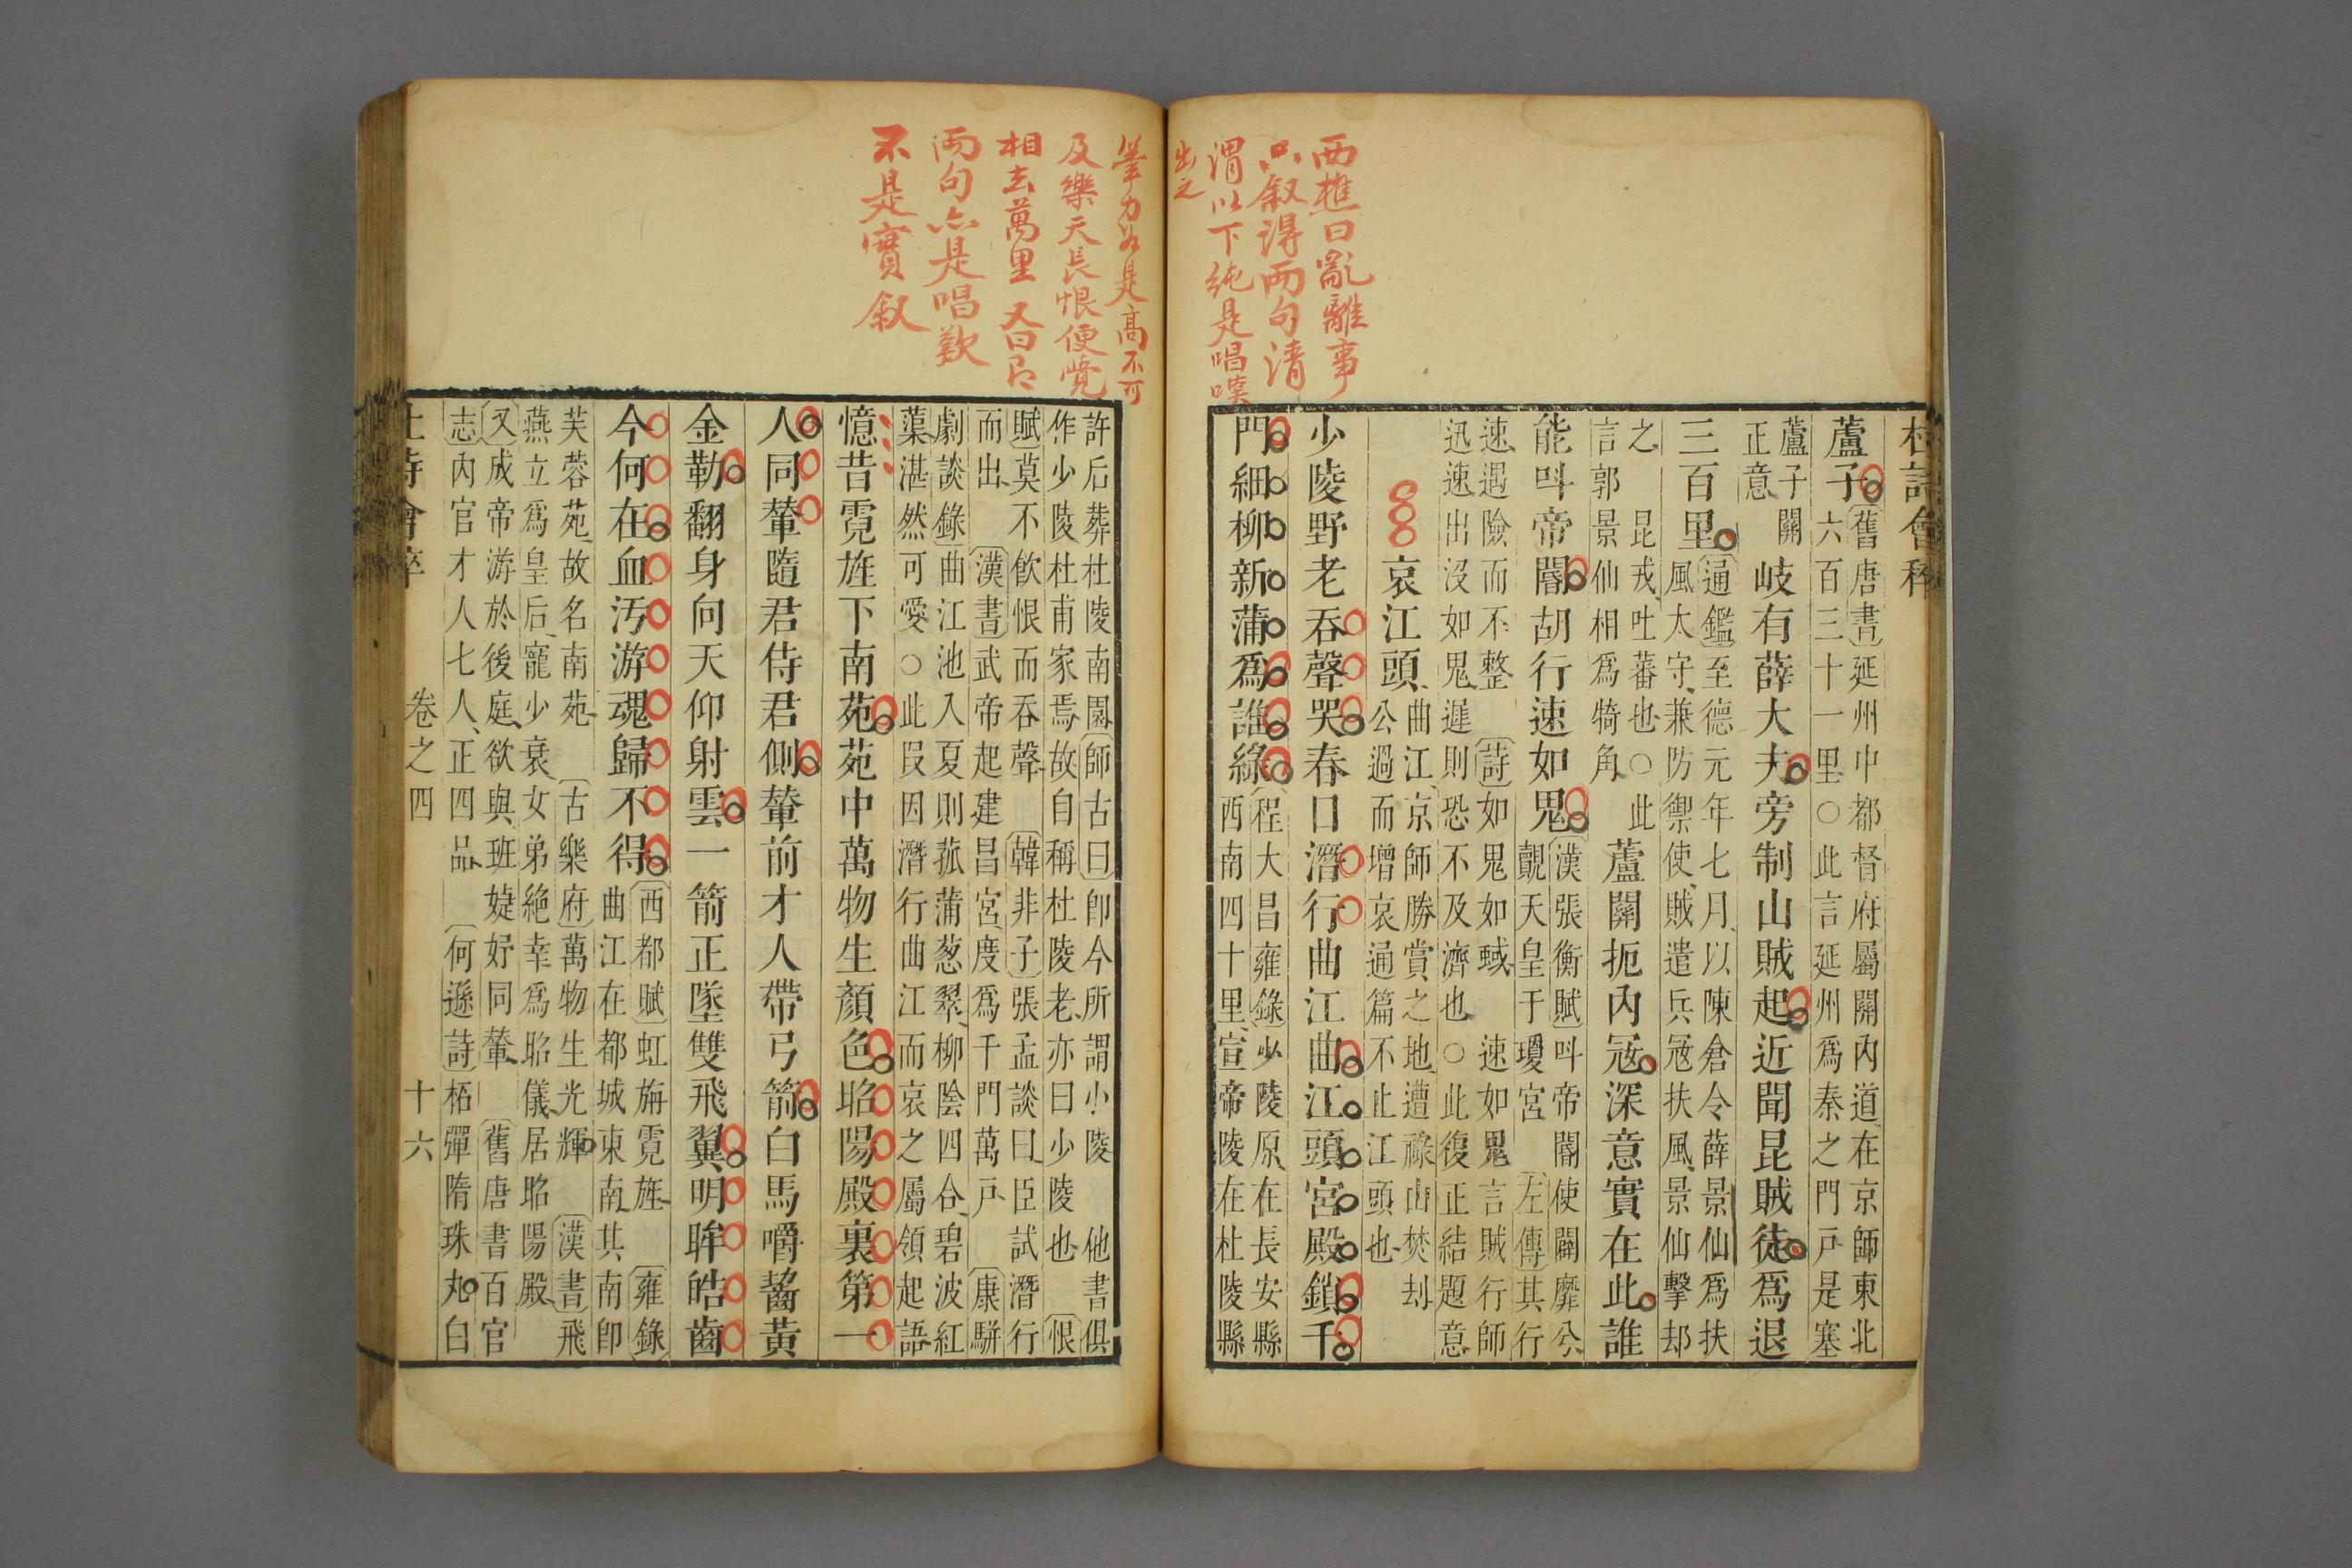 西樵曰亂離事
只叙得兩句清
渭以下純是唱嘆
出之
杜詩會稡
蘆子
〔舊唐書〕延州中都督府屬關內道在京師東北
六百三十一里○此言延州爲秦之門戶是塞
蘆子關
正意
岐有薛大夫旁制山賊起近聞昆賊徒爲退
三百里
〔通鑑〕至德元年七月以陳倉令薛景仙爲扶
風太守兼防禦使賊遣兵寇扶風景仙擊却
之 昆戎吐蕃也○此
言郭景仙相爲犄角
蘆關扼內寇深意實在此誰
能呌帝閽胡行速如鬼
〔漢張衡賦〕呌帝閽使闢扉兮
覿天皇于瓊宮 〔左傳〕其行
速遇險而不整 〔詩〕如鬼如蜮 速如鬼言賊行師
迅速出沒如鬼遲則恐不及濟也○此復正結題意
哀江頭
曲江京師勝賞之地遭祿山焚刦
公過而增哀通篇不止江頭也
少陵野老吞聲哭春日潛行曲江曲江頭宮殿鎖千
門細柳新蒲爲誰綠
〔程大昌雍錄〕少陵原在長安縣
西南四十里宣帝陵在杜陵縣
筆力如是高不可
及樂天長恨便覺
相去萬里 又曰即
兩句亦是唱歎
不是實叙
許后葬杜陵南園〔師古曰〕即今所謂小陵 他書俱
作少陵杜甫家焉故自稱杜陵老亦曰少陵也 〔恨
賦〕莫不飲恨而吞聲 〔韓非子〕張孟談曰臣試潛行
而出 〔漢書〕武帝起建昌宮度爲千門萬戶 〔康駢
劇談錄〕曲江池入夏則菰蒲葱翠柳陰四合碧波紅
蕖湛然可愛○此叚因潛行曲江而哀之屬領起語
憶昔霓旌下南苑苑中萬物生顏色昭陽殿裏第一
人同輦隨君侍君側輦前才人帶弓箭白馬嚼齧黃
金勒翻身向天仰射雲一箭正墜雙飛翼明眸皓齒
今何在血汚游魂歸不得
〔西都賦〕虹旃霓旌 〔雍錄〕
曲江在都城東南其南即
芙蓉苑故名南苑 〔古樂府〕萬物生光輝 〔漢書〕飛
燕立爲皇后寵少衰女弟絕幸爲昭儀居昭陽殿
〔又〕成帝游於後庭欲與班婕妤同輦 〔舊唐書百官
志〕內官才人七人正四品 〔何遜詩〕柘彈隋珠丸白
杜詩會稡 卷之四 十六